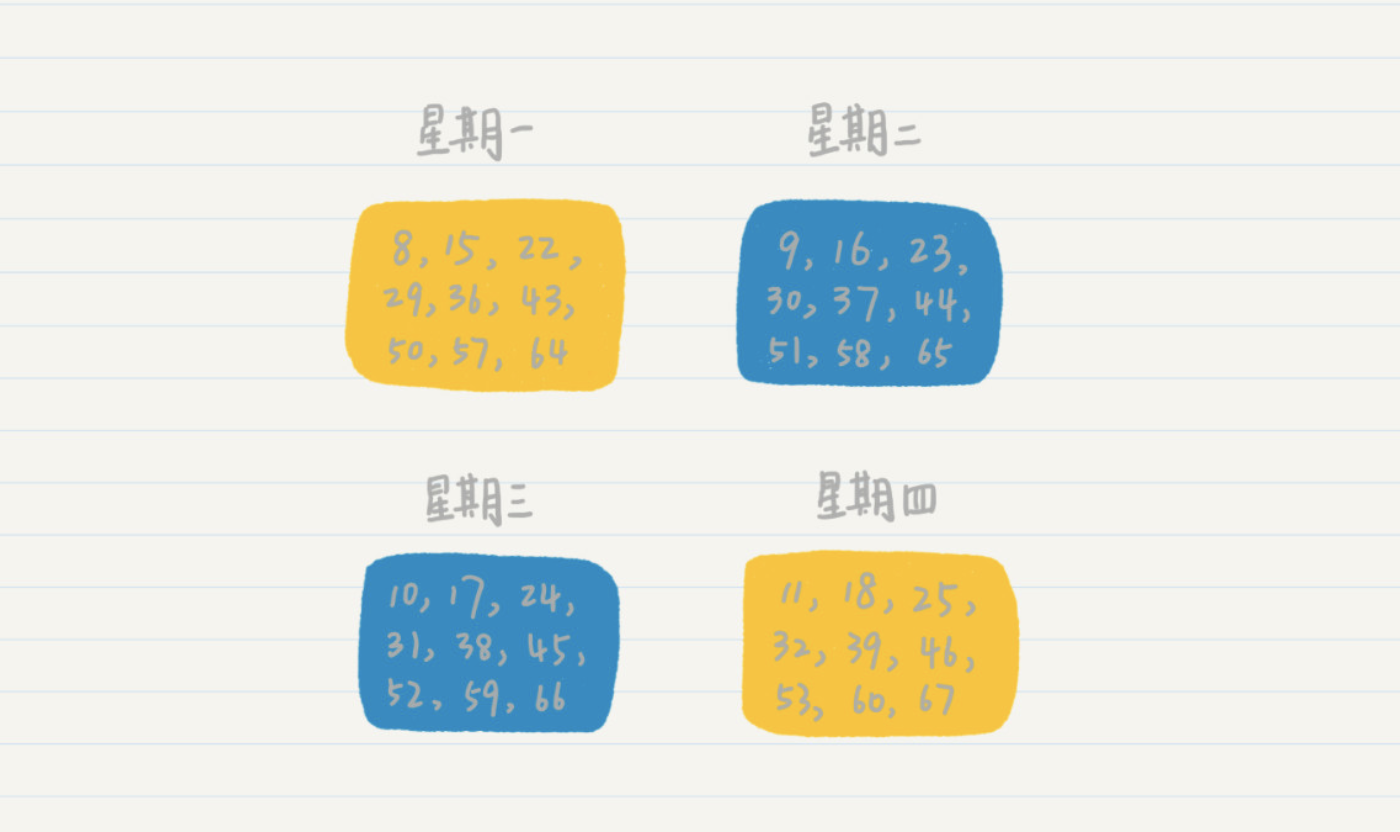 星期一
8, 15, 22,
29, 36, 43,
50, 57, 64
星期二
9, 16, 23,
30, 37, 44,
51, 58, 65
星期三
10, 17, 24,
31, 38, 45,
52, 59, 66
星期四
11, 18, 25,
32, 39, 46,
53, 60, 67